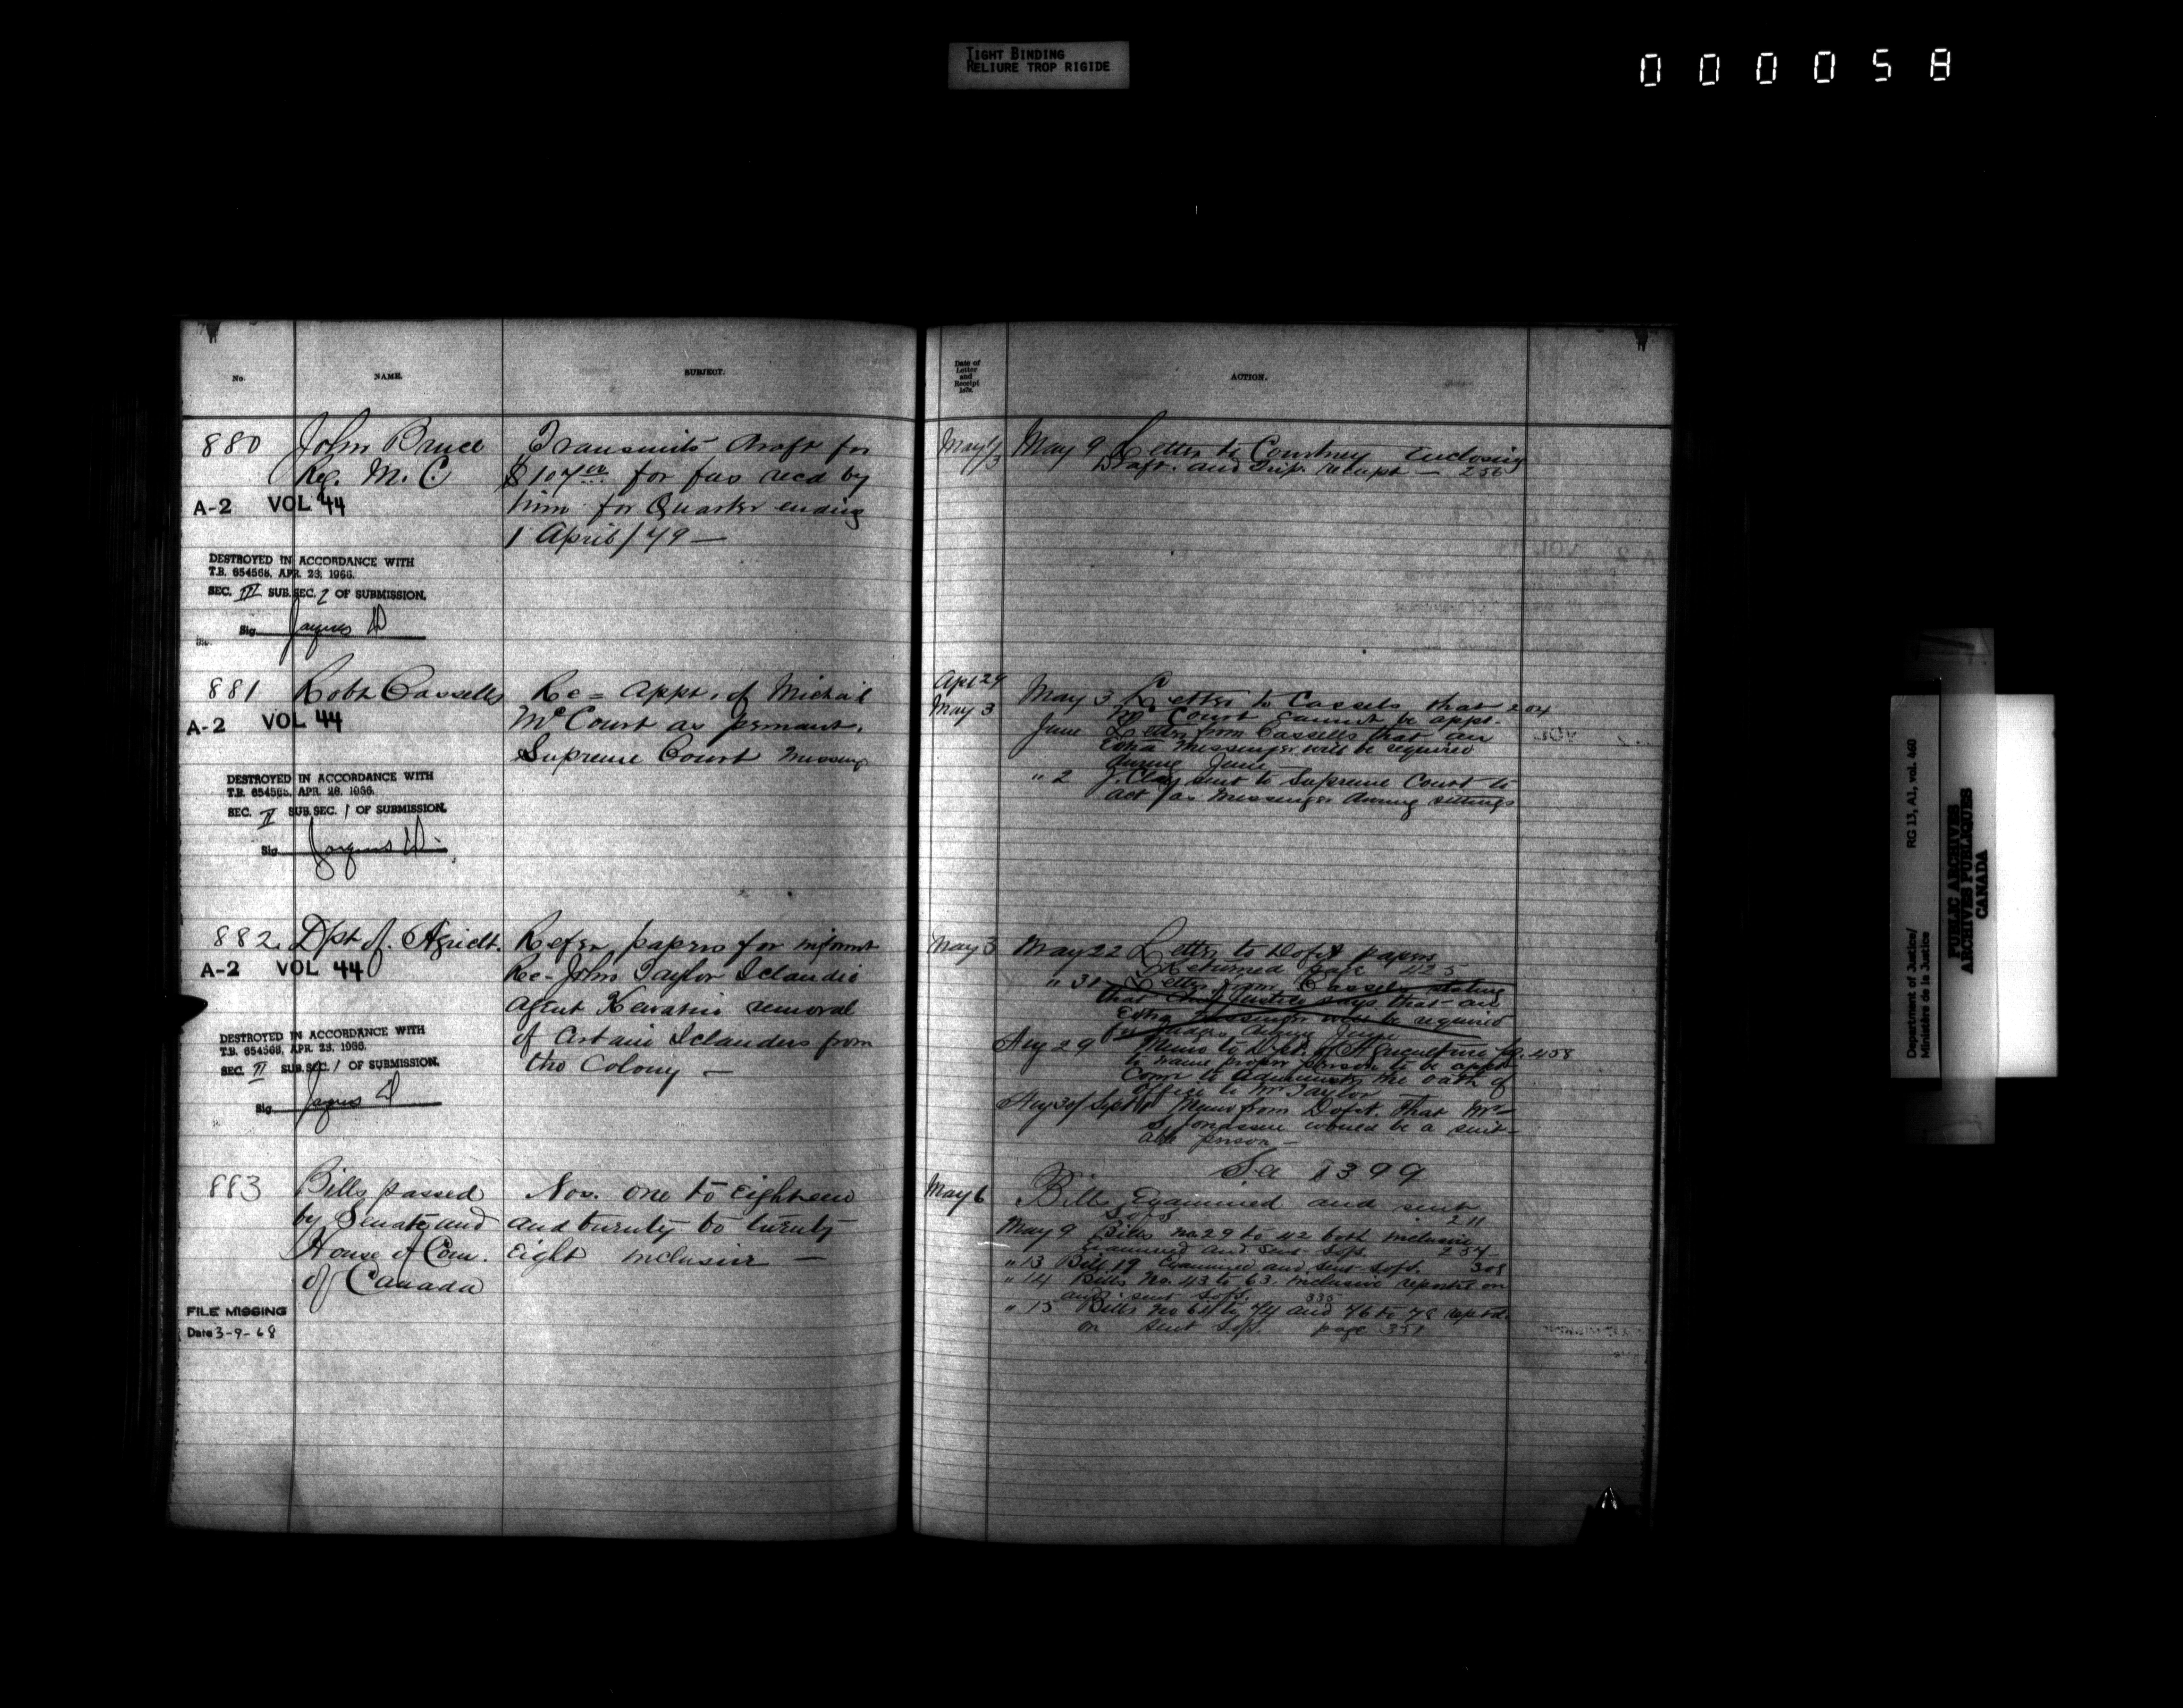 TIGHT BINDING
RELIURE TROP RIGIDE
000058
No.
NAME.
SUBJECT.
Date of
Letter
and
Receipt
ACTION.
880
John Bruce
Reg. M. C
A-2 VOL 44
Transmits draft for
$107 for fees recd by
him for Quarter ending
1 April/79 —
May 1/3
May 9 Letter to Courtney Enclosing
Draft. and trip. receipt — 256
DESTROYED IN ACCORDANCE WITH
T.B. 654568, APR. 23, 1966.
SEC. III SUB.SEC. 2 OF SUBMISSION.
Sig.
881
Robt Cassells
A-2 VOL 44
Re = appt. of Michael
McCourt as permant.
Supreme Court messengr
Apl 29
May 3
May 3 Letter to Cassels that 204
McCourt cannot be appt.
June Letter from Cassells that an
Extra messenger will be required
during June
" 2 J. Clay sent to Supreme Court to
act as messenger during sittings
DESTROYED IN ACCORDANCE WITH
T.B. 654568, APR. 28, 1966.
SEC. II SUB.SEC. 1 OF SUBMISSION.
Sig.
882.
Dpt of. Agricult.
A-2 VOL 44
Refer papers for informt
Re- John Taylor Iclandic
agent Kewatin removal
of Certain Iclanders from
the Colony —
May 3
May 22 Letter to Dofit papers
Returned page 425
" 31 Letter from Cassels stating
that Chief Justice says that an
Extra messenger will be required
for Judges during June
Aug 29 Memo to Dept. of Agriculture fo. 458
to name proper person to be apptd
Comr to Administer the oath of
office to Mr Taylor
Aug 30/Sept 1 Memo from Dofit. that Mr
S. Jonassen would be a suit-
able person —
DESTROYED IN ACCORDANCE WITH
T.B. 654568, APR. 23, 1966.
SEC. II SUB.SEC. 1 OF SUBMISSION.
Sig.
883
Bills passed
by Senate and
House of Com.
of Canada
Nos. one to Eighteen
and twenty to twenty
Eight inclusive —
May 6
1399
Bills Examined and sent
SofS. 211
May 9 Bills no. 29 to 42 both inclusive
Examined and sent SofS. 254
" 13 Bill 19 Examined and sent SofS. 308
" 14 Bills No. 43 to 63. inclusive reported on
and sent SofS. 335
" 15 Bills No 64 to 74 and 76 to 78 reptd.
on sent SofS. page 351
FILE MISSING
Date 3-9-68
Department of Justice/
Ministère de la Justice
RG 13, A1, vol. 460
PUBLIC ARCHIVES
ARCHIVES PUBLIQUES
CANADA